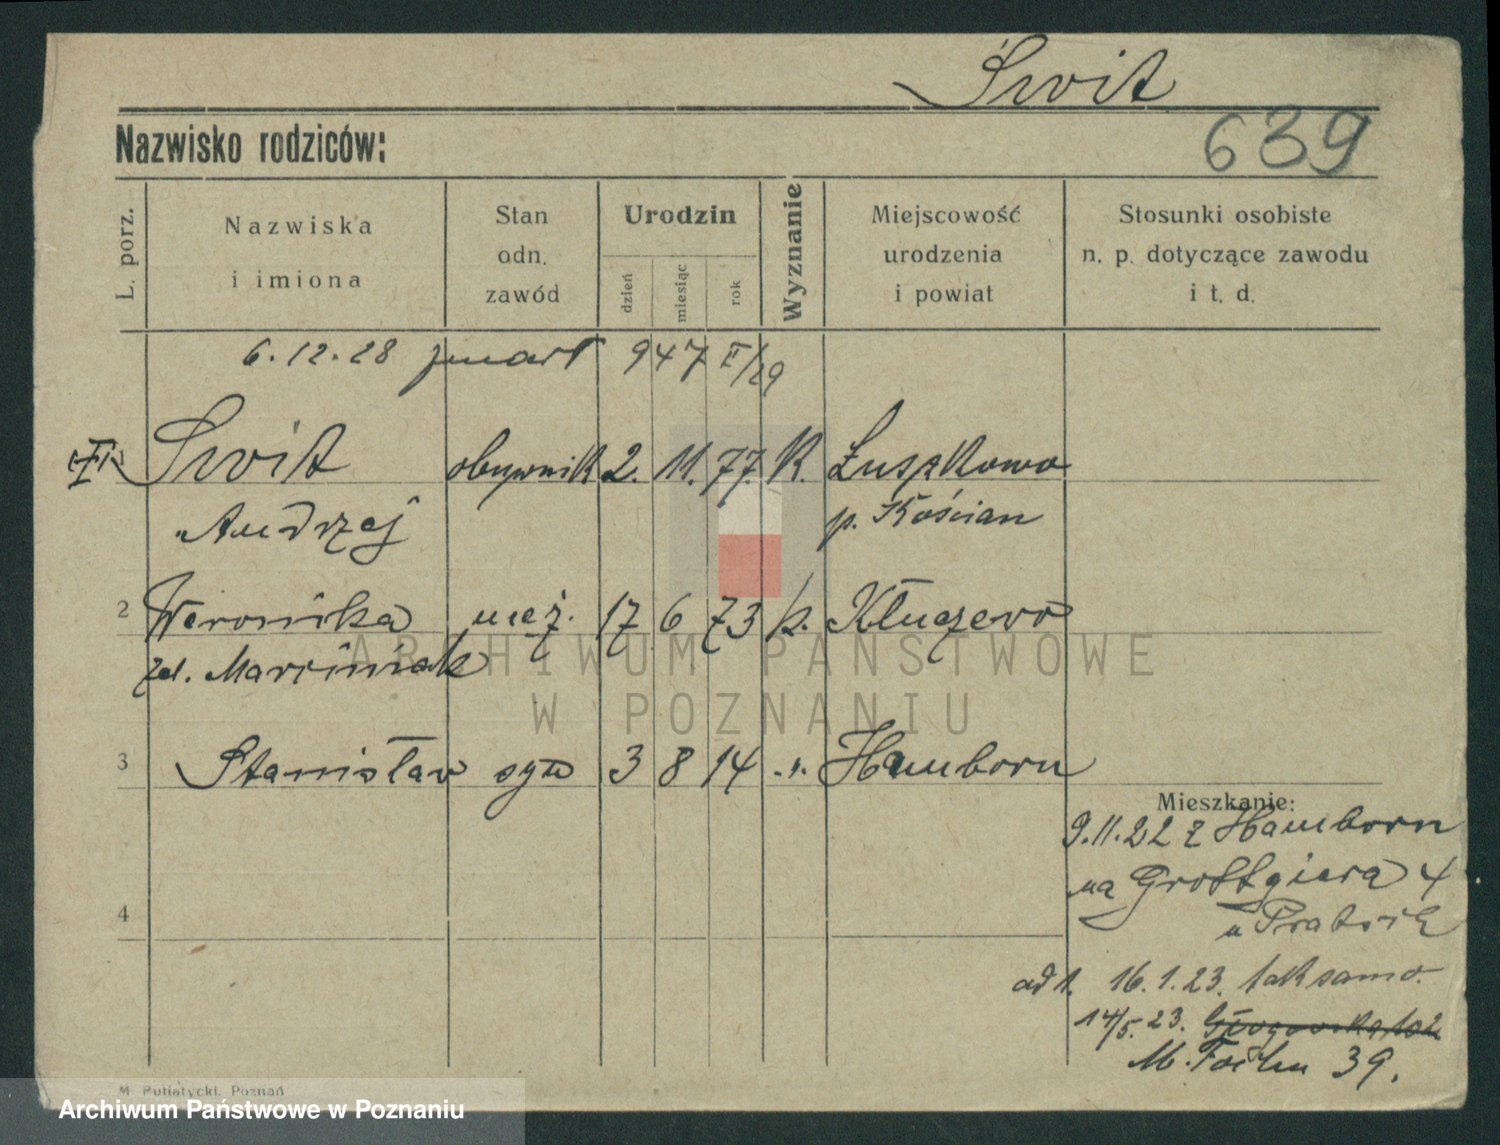 Świt
639
Nazwisko rodziców:
L. porz.
Nazwiska
i imiona
Stan
odn.
zawód
Urodzin
dzień
miesiąc
rok
Wyznanie
Miejscowość
urodzenia
i powiat
Stosunki osobiste
n. p. dotyczące zawodu
i t. d.
6.12.28 zmarł 947 II/29
Świt obuwnik 2. 11. 77. K. Łuszkowo
Andrzej p. Kościan
2 Weronika męż. 17 6 73 k. Kluczewo
zd. Marciniak
3 Stanisław syn 3 8 14 -"- Hamborn
Mieszkanie:
9.11.22 z Hamborn
na Grottgiera 4
u Pratsik
4
ad 1. 16.1.23. tak samo.
14/5.23. Głogowska 102
M. Focha 39.
M. Putiatycki, Poznań
ARCHIWUM PAŃSTWOWE
W POZNANIU
Archiwum Państwowe w Poznaniu